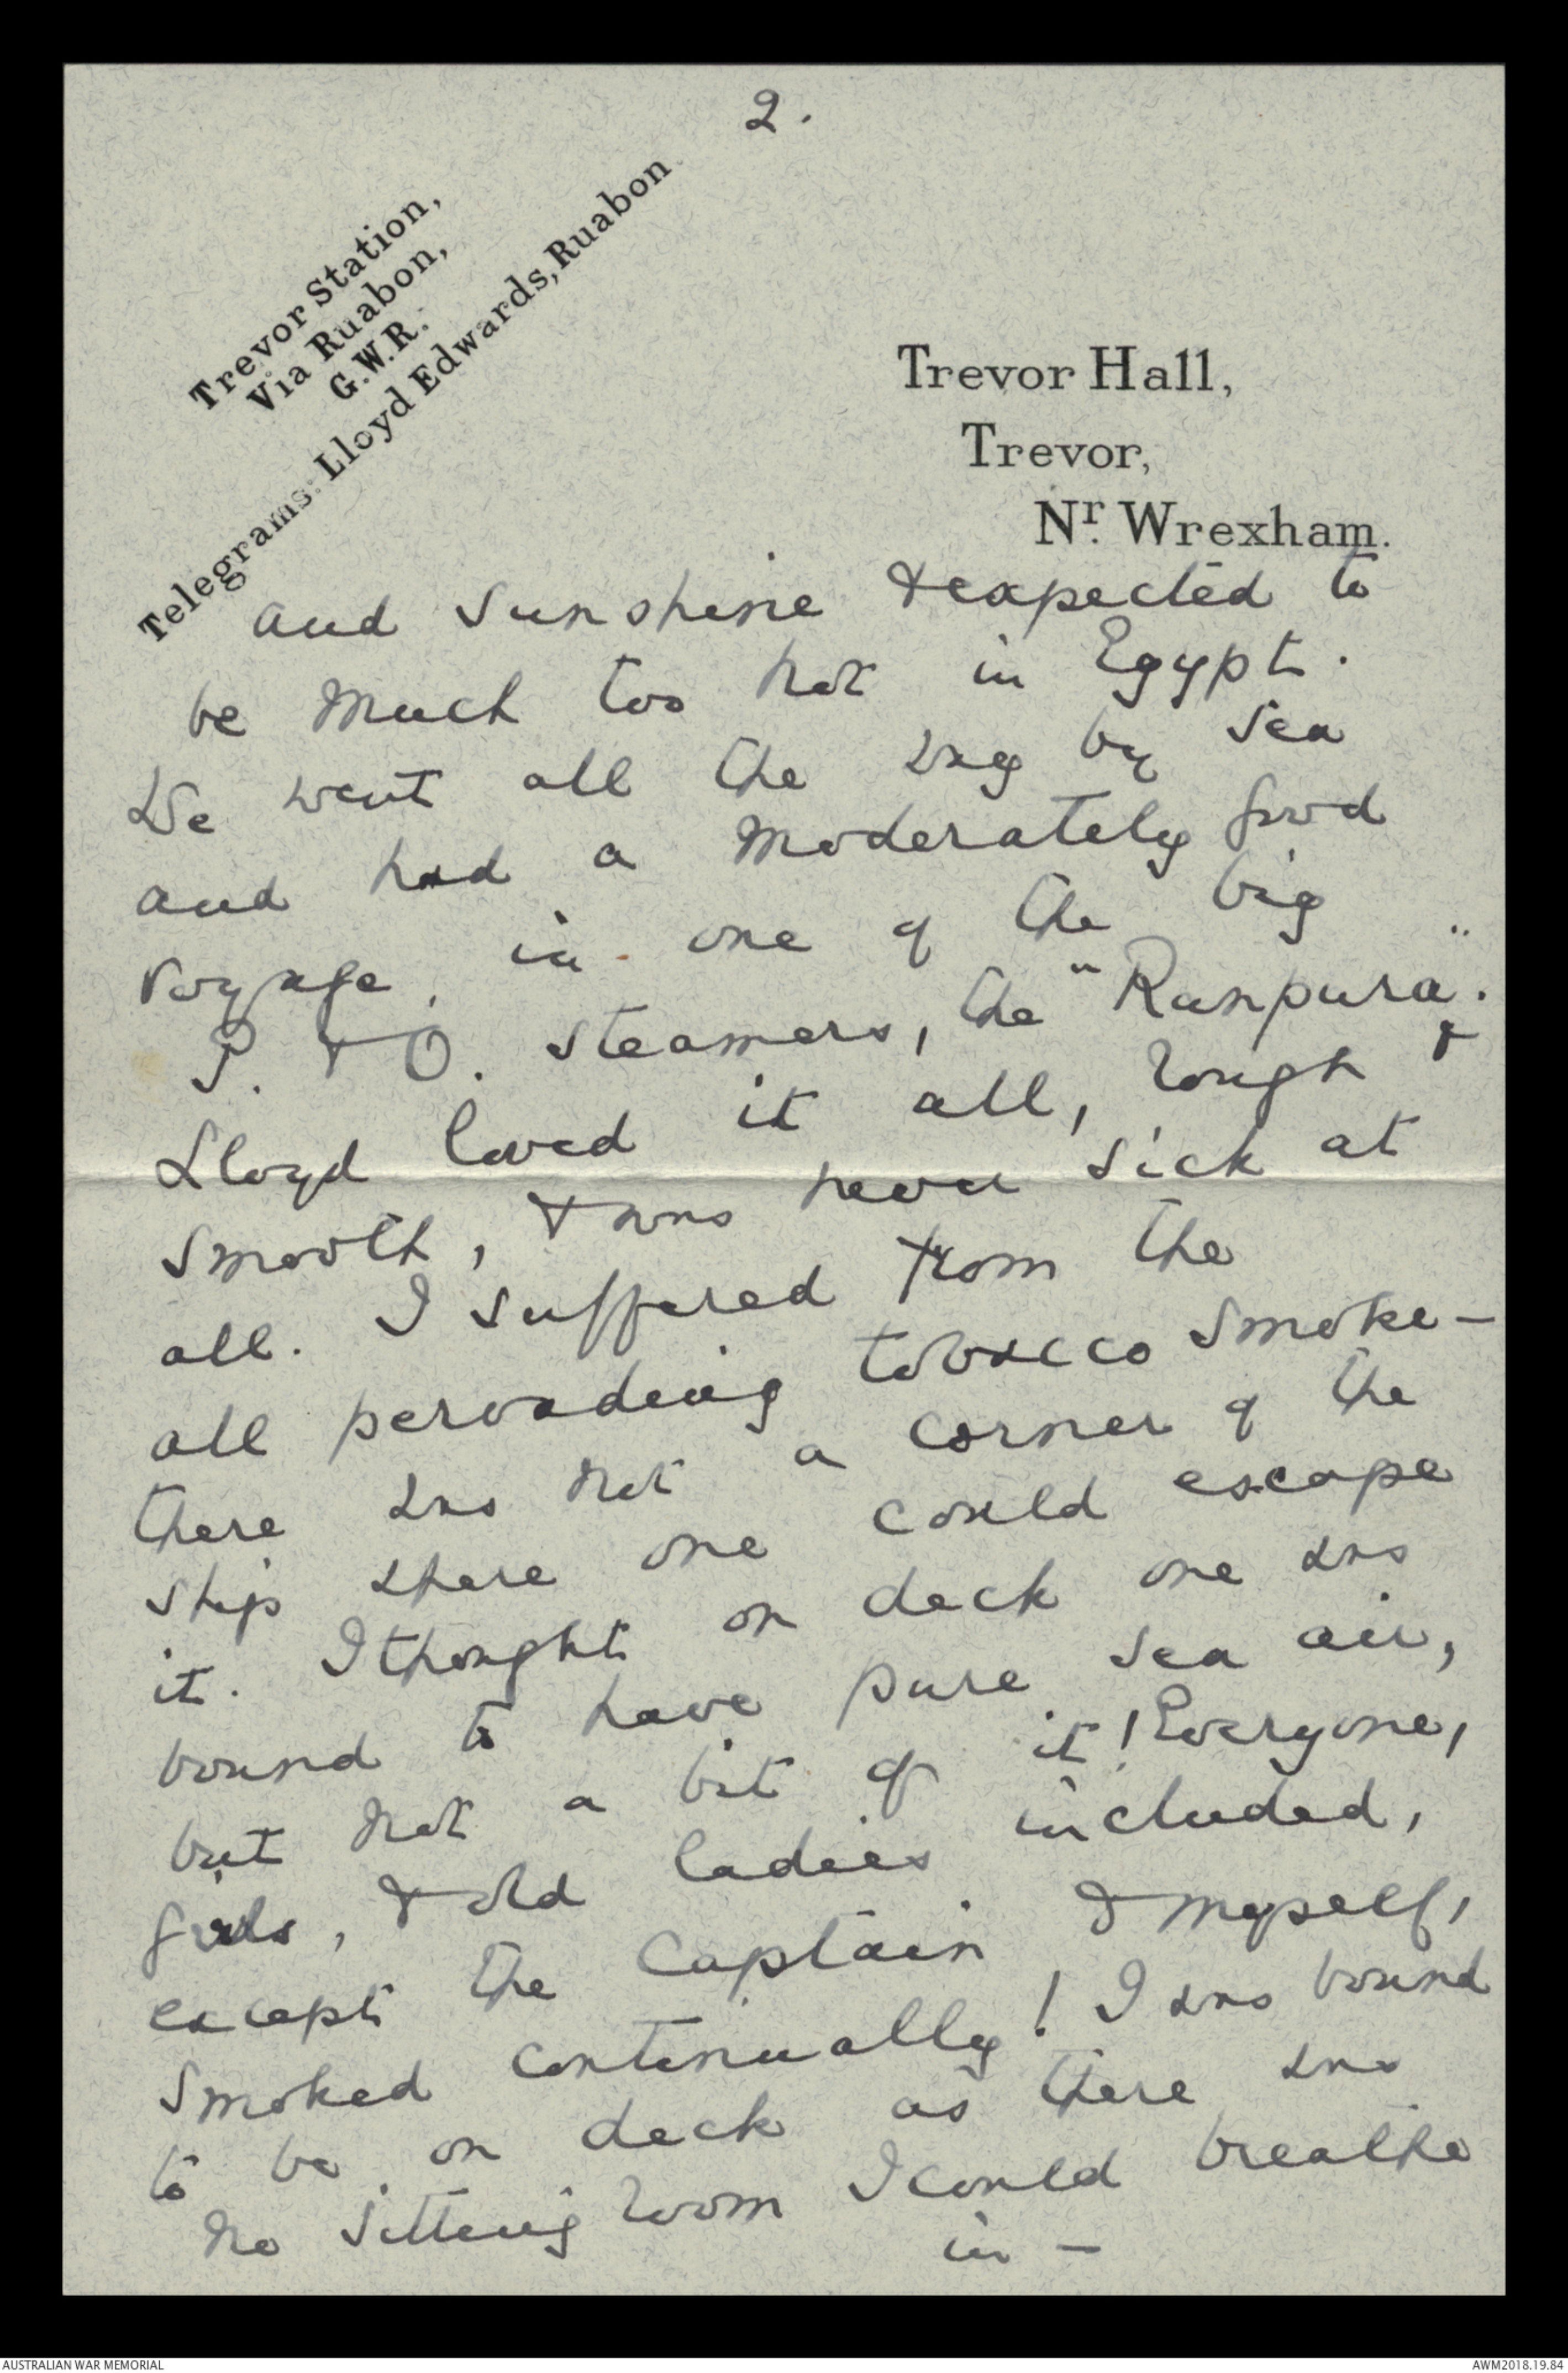 2.
Trevor Station,
Via Ruabon,
G.W.R.
Telegrams: Lloyd Edwards, Ruabon
Trevor Hall,
Trevor,
Nr. Wrexham.
and sunshine & expected to
be much too hot in Egypt.
We went all the way by sea
and had a moderately good
voyage, in one of the big
P. & O. steamers, the "Ranpura".
Lloyd loved it all, rough &
smooth, & was never sick at
all. I suffered from the
all pervading tobacco smoke -
there was not a corner of the
ship where one could escape
it. I thought on deck one was
bound to have pure sea air,
but not a bit of it! Everyone,
girls, & old ladies included,
except the Captain & myself,
smoked continually! I was bound
to be on deck as there was
no sitting room I could breathe
in -
AUSTRALIAN WAR MEMORIAL
AWM2018.19.84